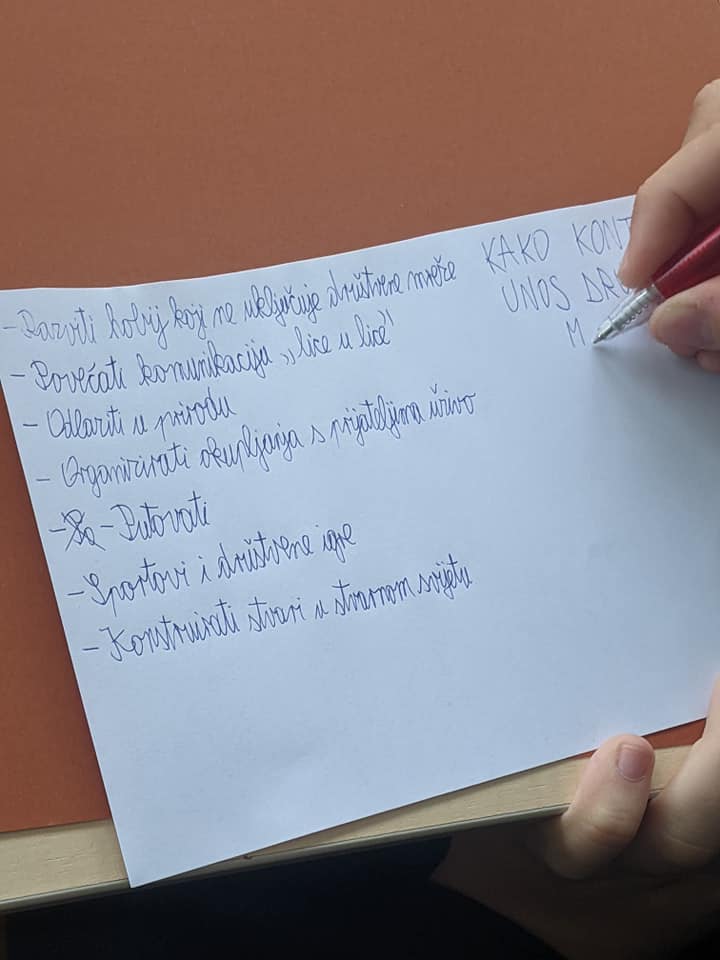 - Razviti hobij koji ne uključuje društvene mreže
- Povećati komunikaciju „lice u lice"
- Odlaziti u prirodu
- Organizirati okupljanja s prijateljima uživo
- Putovati
- Sportovi i društvene igre
- Konstruirati stvari u stvarnom svijetu
KAKO KONT
UNOS DRU
M